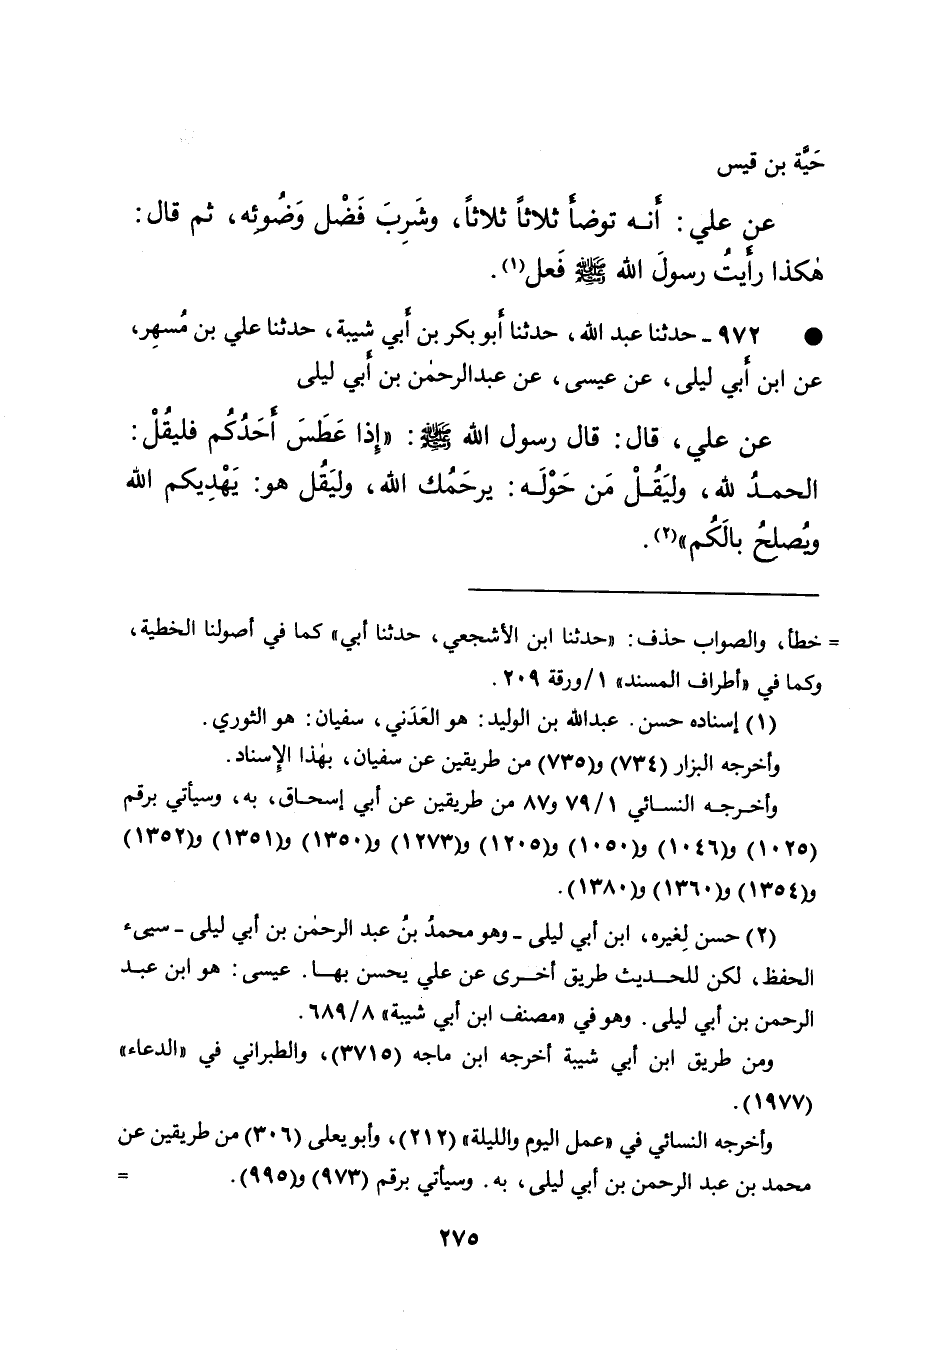 حَيَّة بن قيس
عن علي: أَنه توضأَ ثلاثاً ثلاثاً، وشَرِبَ فَضْل وَضُوئِه، ثم قال:
هٰكذا رأَيتُ رسولَ الله ﷺ فَعل(١).
● ٩٧٢ ـ حدثنا عبد الله، حدثنا أَبو بكر بن أَبي شيبة، حدثنا علي بن مُسهِر،
عن ابن أَبي ليلى، عن عيسى، عن عبدالرحمٰن بن أَبي ليلى
عن علي، قال: قال رسول الله ﷺ: «إِذا عَطَسَ أَحَدُكُم فليقُلْ:
الحمدُ لله، وليَقُلْ مَن حَوْلَه: يرحَمُك الله، وليَقُل هو: يَهْدِيكم الله
ويُصلحُ بالَكُم»(٢).
= خطأ، والصواب حذف: «حدثنا ابن الأشجعي، حدثنا أبي» كما في أصولنا الخطية،
وكما في «أطراف المسند» ١/ورقة ٢٠٩.
(١) إسناده حسن. عبدالله بن الوليد: هو العَدَني، سفيان: هو الثوري.
وأخرجه البزار (٧٣٤) و(٧٣٥) من طريقين عن سفيان، بهٰذا الإسناد.
وأخرجه النسائي ٧٩/١ و٨٧ من طريقين عن أبي إسحاق، به، وسيأتي برقم
(١٠٢٥) و(١٠٤٦) و(١٠٥٠) و(١٢٠٥) و(١٢٧٣) و(١٣٥٠) و(١٣٥١) و(١٣٥٢)
و(١٣٥٤) و(١٣٦٠) و(١٣٨٠).
(٢) حسن لِغيره، ابن أبي ليلى ـ وهو محمدُ بنُ عبد الرحمٰن بن أبي ليلى ـ سيىء
الحفظ، لكن للحديث طريق أخرى عن علي يحسن بها. عيسى: هو ابن عبد
الرحمن بن أبي ليلى. وهو في «مصنف ابن أبي شيبة» ٦٨٩/٨.
ومن طريق ابن أبي شيبة أخرجه ابن ماجه (٣٧١٥)، والطبراني في «الدعاء»
(١٩٧٧).
وأخرجه النسائي في «عمل اليوم والليلة» (٢١٢)، وأبو يعلى (٣٠٦) من طريقين عن
محمد بن عبد الرحمن بن أبي ليلى، به. وسيأتي برقم (٩٧٣) و(٩٩٥). =
٢٧٥